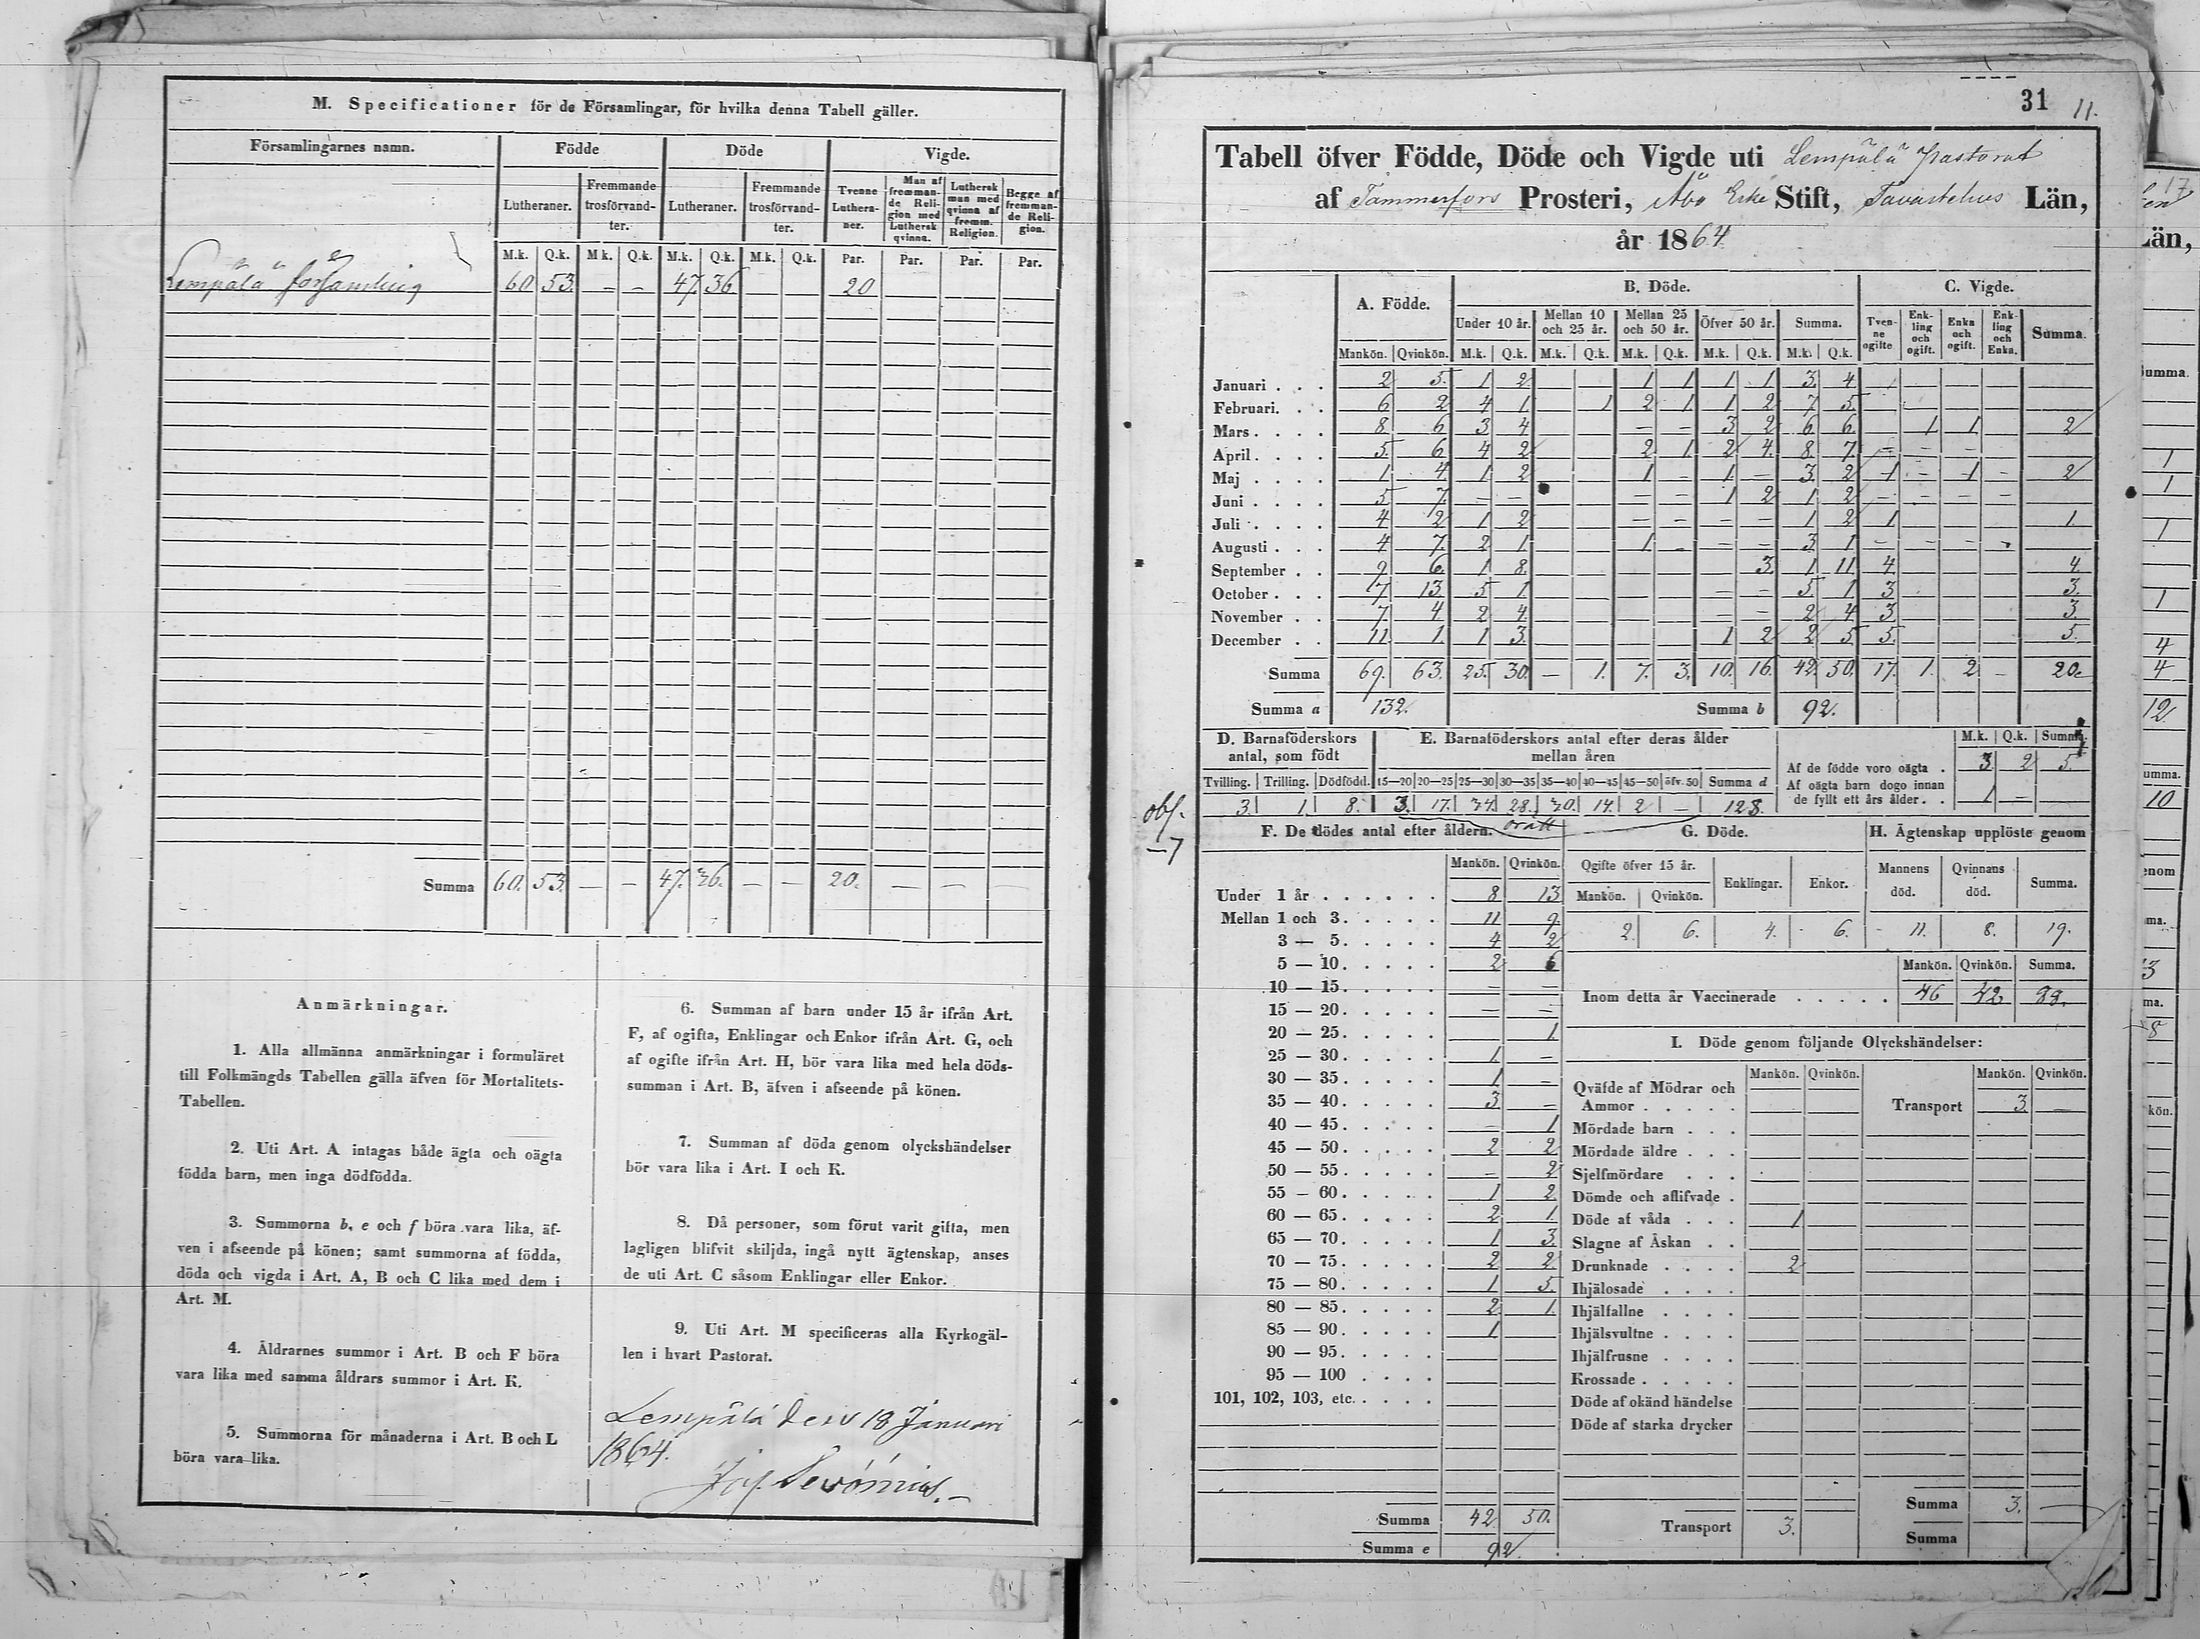 M. Specificationer för de Församlingar, för hvilka denna Tabell gäller.
Församlingarnes namn. Födde Döde Vigde.
Lutheraner. Fremmande trosförvandter. Lutheraner. Fremmande trosförvandter. Tvenne Lutheraner. Man af fremmande Religion med Luthersk qvinna. Luthersk man med qvinna af fremm. Religion. Begge af fremmande Religion.
M.k. Q.k. M k. Q.k. M.k. Q.k. M.k. Q.k. Par. Par. Par. Par.
Lempälä församling 60 53 – – 47 36 20
Summa 60. 53. – – 47. 36. – – 20. – – –
Anmärkningar.
1. Alla allmänna anmärkningar i formuläret
till Folkmängds Tabellen gälla äfven för Mortalitets-
Tabellen.
2. Uti Art. A intagas både ägta och oägta
födda barn, men inga dödfödda.
3. Summorna b, e och f böra vara lika, äf-
ven i afseende på könen; samt summorna af födda,
döda och vigda i Art. A, B och C lika med dem i
Art. M.
4. Åldrarnes summor i Art. B och F böra
vara lika med samma åldrars summor i Art. K.
5. Summorna för månaderna i Art. B och L
böra vara lika.
6. Summan af barn under 15 år ifrån Art.
F, af ogifta, Enklingar och Enkor ifrån Art. G, och
af ogifte ifrån Art. H, bör vara lika med hela döds-
summan i Art. B, äfven i afseende på könen.
7. Summan af döda genom olyckshändelser
bör vara lika i Art. I och K.
8. Då personer, som förut varit gifta, men
lagligen blifvit skiljda, ingå nytt ägtenskap, anses
de uti Art. C såsom Enklingar eller Enkor.
9. Uti Art. M specificeras alla Kyrkogäl-
len i hvart Pastorat.
Lempälä den 18 Januari
1864.
31 11.
Tabell öfver Födde, Döde och Vigde uti Lempälä Pastorat
af Tammerfors Prosteri, Åbo Erke Stift, Tavastehus Län,
år 1864.
A. Födde. B. Döde. C. Vigde.
Under 10 år. Mellan 10 och 25 år. Mellan 25 och 50 år. Öfver 50 år. Summa. Tvenne ogifte Enkling och ogift. Enka och ogift. Enkling och Enka. Summa.
Mankön. Qvinkön. M.k. Q.k. M.k. Q.k. M.k. Q.k. M.k. Q.k. M.k. Q.k.
Januari . . . 2 5. 1 2 1 1 1 1 3. 4
Februari. . . 6 2 4 1 1 2 1 1 2 7 5
Mars . . . . 8 6 3 4 – – 3 2 6 6 1 1 2
April . . . . 5 6 4 2 2 1 2 4 8 7 – – –
Maj . . . . 1 4 1 2 1 – 1 – 3 2 1 – 1 – 2
Juni . . . . 5 7 – – – – 1 2 1 2 – – – –
Juli . . . . 4 2 1 2 – – – – 1 2 1 1
Augusti . . . 4 7 2 1 1 – – – 3 1 – – – –
September . . 9 6 1 8 3 1 11 4 4
October . . . 7 13 5 1 – – 5 1 3 3.
November . . 7. 4 2 4 – – 2 4 3 3.
December . . 11 1 1 3 1 2 2 5 5 5
Summa 69. 63. 25. 30. – 1. 7. 3. 10. 16. 42. 50. 17. 1. 2. – 20.
Summa a 132. Summa b 92.
D. Barnaföderskors antal, som födt
E. Barnaföderskors antal efter deras ålder mellan åren
Tvilling. Trilling. Dödfödd. 15—20 20—25 25—30 30—35 35—40 40—45 45—50 öfv. 50 Summa d
3. 1. 8. 3. 17. 34. 28. 30. 14. 2 – 128.
M.k. Q.k. Summa.
Af de födde voro oägta . 3. 2 5.
Af oägta barn dogo innan
de fyllt ett års ålder . . 1 –
obs.
–7
orätt
F. De dödes antal efter åldern.
Mankön. Qvinkön.
Under 1 år . . . . . . 8 13
Mellan 1 och 3. . . . . 11 9
3 — 5. . . . . 4 2
5 — 10. . . . . 2 6
10 — 15. . . . . – –
15 — 20. . . . . – –
20 — 25. . . . . 1
25 — 30. . . . . 1 –
30 — 35. . . . . 1 –
35 — 40. . . . . 3 –
40 — 45. . . . . – 1
45 — 50. . . . . 2 2
50 — 55. . . . . – 2
55 — 60. . . . . 1 2
60 — 65. . . . . 2 1.
65 — 70. . . . . 1 3.
70 — 75. . . . . 2 2
75 — 80. . . . . 1 5.
80 — 85. . . . . 2 1
85 — 90. . . . . 1
90 — 95. . . . .
95 — 100 . . . .
101, 102, 103, etc. . . . .
Summa 42 50.
Summa e 92.
G. Döde.
Ogifte öfver 15 år. Enklingar. Enkor.
Mankön. Qvinkön.
2. 6. 4. 6.
H. Ägtenskap upplöste genom
Mannens död. Qvinnans död. Summa.
11. 8. 19.
Mankön. Qvinkön. Summa.
Inom detta år Vaccinerade . . . . . 46 42 88.
I. Döde genom följande Olyckshändelser:
Mankön. Qvinkön. Mankön. Qvinkön.
Qväfde af Mödrar och
Ammor . . . . . Transport 3 –
Mördade barn . . .
Mördade äldre . . .
Sjelfmördare . . .
Dömde och aflifvade .
Döde af våda . . . 1
Slagne af Åskan . .
Drunknade . . . . 2
Ihjälosade . . . .
Ihjälfallne . . . .
Ihjälsvultne . . . .
Ihjälfrusne . . . .
Krossade . . . . .
Döde af okänd händelse
Döde af starka drycker
Summa 3. –
Transport 3.
Summa